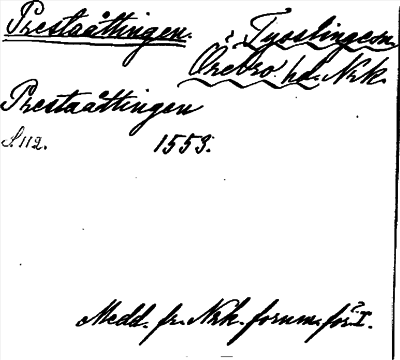 Prestaåttingen. i Tysslinge sn,
Örebro hd. Nrk.
Prestaåttingen
S. 112. 1553.
Medd. fr. Nrk. fornm. för. I.